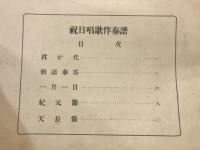 祝日唱歌伴奏譜
目次
君が代……一
勅語奉答……二
一月一日……六
紀元節……八
天長節……一〇